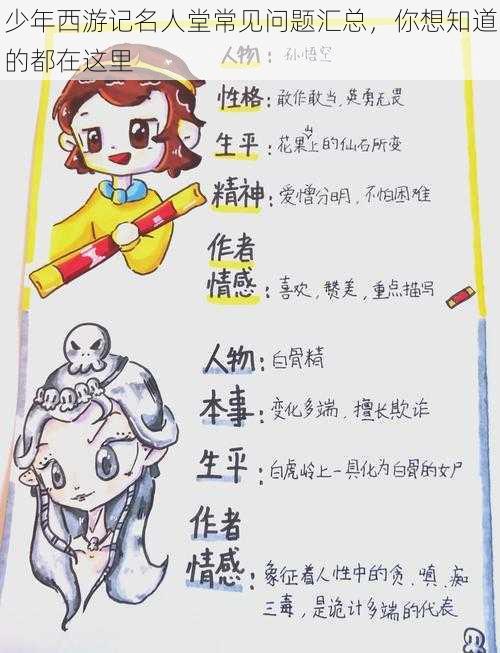 少年西游记名人堂常见问题汇总，你想知道
的都在这里
人物：孙悟空
性格：敢作敢当，英勇无畏
生平：花果山上的仙石所变
精神：爱憎分明，不怕困难
作者
情感：喜欢，赞美，重点描写
人物：白骨精
本事：变化多端，擅长欺诈
生平：白虎岭上一具化为白骨的女尸
作者
情感：象征着人性中的贪、嗔、痴
三毒，是诡计多端的代表